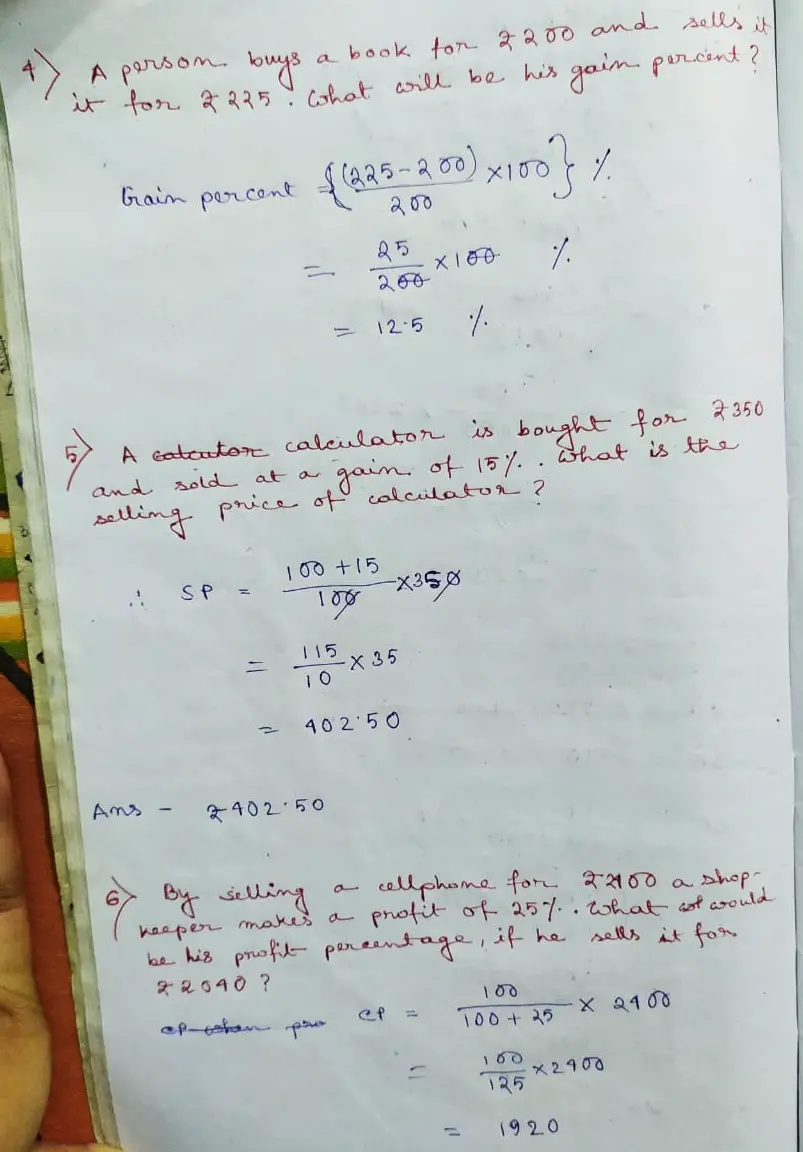 4) A person buys a book for ₹200 and sells it
it for ₹225. What will be his gain percent?
Gain percent = {(225-200)/200 ×100} %
= 25/200 ×100 %
= 12.5 %
5) A calcutor calculator is bought for ₹350
and sold at a gain of 15%. What is the
selling price of calculator?
∴ SP = 100+15/100 ×350
= 115/10 × 35
= 402.50
Ans - ₹402.50
6) By selling a cellphone for ₹2400 a shop-
keeper makes a profit of 25%. What would
be his profit percentage, if he sells it for
₹2040?
CP when pro CP = 100/100+25 × 2400
= 100/125 ×2400
= 1920